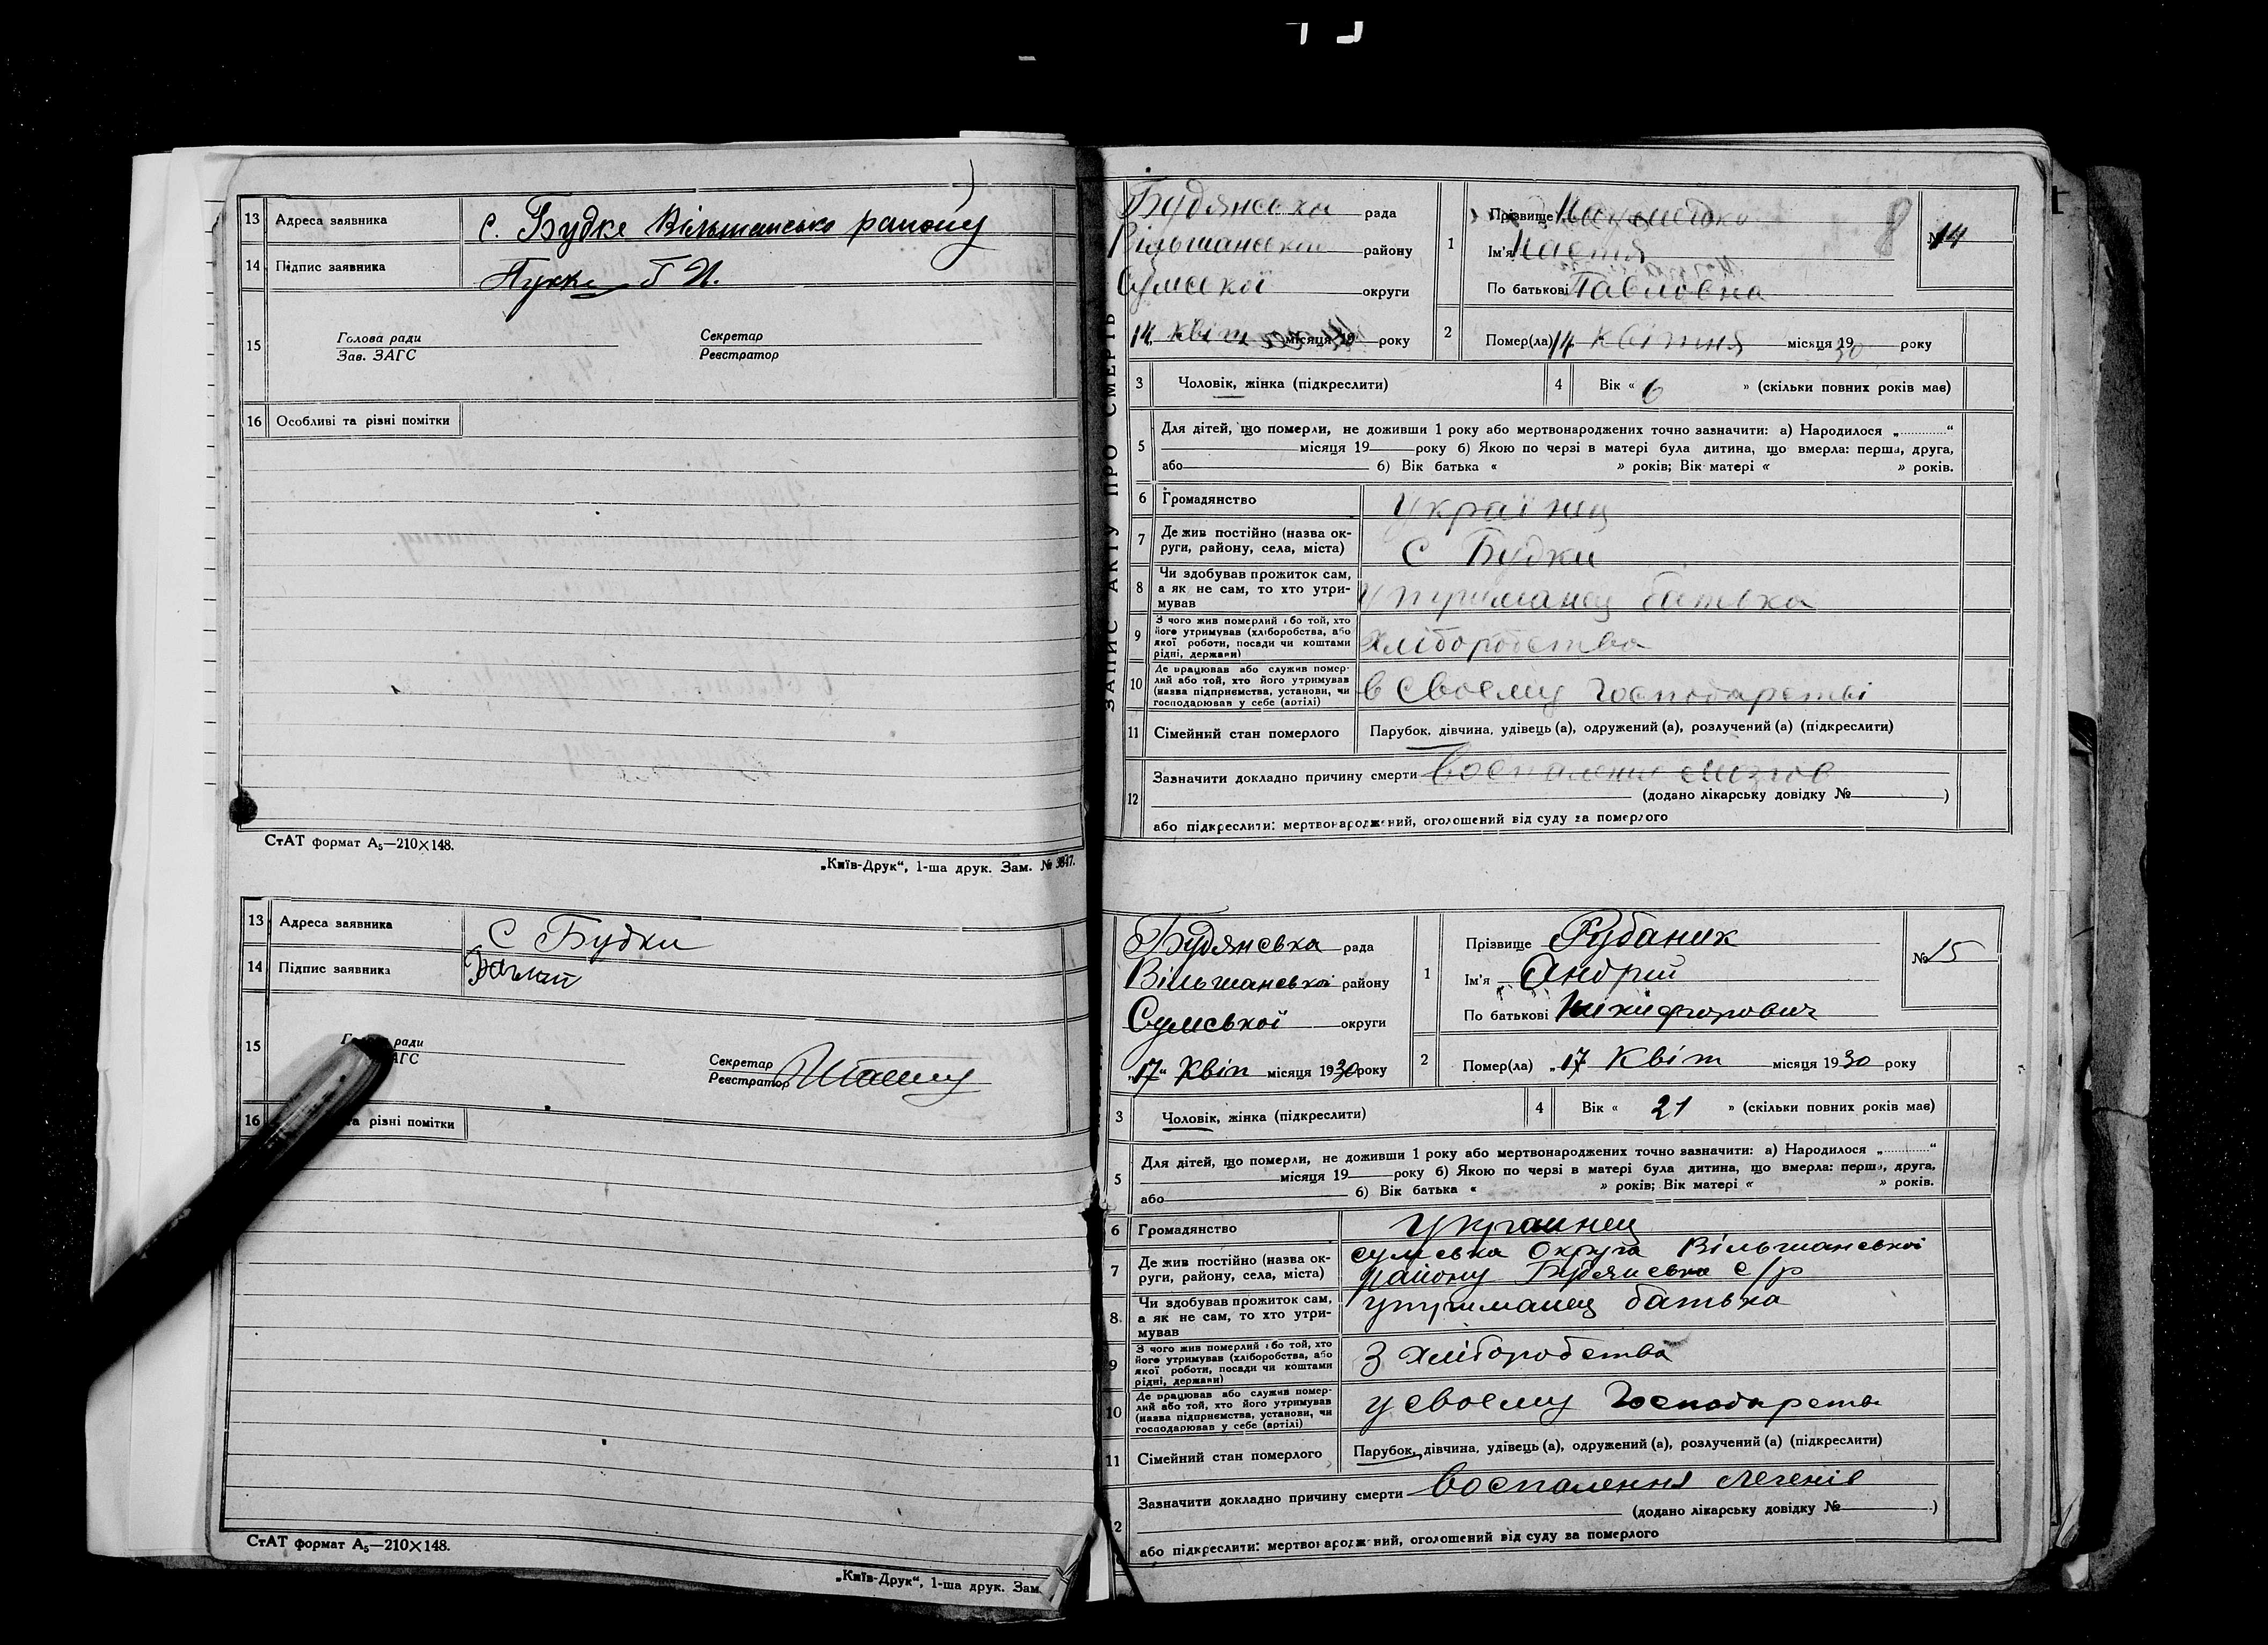 13 Адреса заявника с. Будке Вільшансько району
14 Підпис заявника
15 Голова ради Секретар
Зав. ЗАГС Реєстратор
16 Особливі та різні помітки
СтАТ формат А₅—210×148.
„Київ-Друк“, 1-ша друк. Зам. №
13 Адреса заявника С Будки
14 Підпис заявника
15 ради Секретар
ЗАГС Реєстратор
16 та різні помітки
СтАТ формат А₅—210×148.
„Київ-Друк“, 1-ша друк. Зам.
ЗАПИС АКТУ ПРО СМЕРТЬ
Будянська рада
Вільшанської району
Сумської округи
14 квіт місяця 19 року
1 Прізвище
Ім'я Настя
По батькові Павловна
8
№ 14
2 Помер(ла) 14 квітня місяця 1930 року
3 Чоловік, жінка (підкреслити)
4 Вік « 6 » (скільки повних років має)
5 Для дітей, що померли, не доживши 1 року або мертвонароджених точно зазначити: а) Народилося „............“
місяця 19 року б) Якою по черзі в матері була дитина, що вмерла: перша, друга,
або б) Вік батька « » років; Вік матері « » років.
6 Громадянство українец
7 Де жив постійно (назва ок-
руги, району, села, міста) С Будки
8 Чи здобував прожиток сам,
а як не сам, то хто утри-
мував утриманец батька
9 З чого жив померлий або той, хто
його утримував (хліборобства, або
якої роботи, посади чи коштами
рідні, держави) хліборобства
10 Де працював або служив помер-
лий або той, хто його утримував
(назва підприємства, установи, чи
господарював у себе (артілі) в своєму господарстві
11 Сімейний стан померлого Парубок, дівчина, удівець (а), одружений (а), розлучений (а) (підкреслити)
12 Зазначити докладно причину смерти Воспаления мозгов
(додано лікарську довідку № )
або підкреслити: мертвонароджений, оголошений від суду за померлого
Будянська рада
Вільшанської району
Сумської округи
„17“ Квіт місяця 1930 року
1 Прізвище Рубаник
Ім'я Андрій
По батькові Никифорович
№ 15
2 Помер(ла) „17 Квіт місяця 1930 року
3 Чоловік, жінка (підкреслити)
4 Вік « 21 » (скільки повних років має)
5 Для дітей, що померли, не доживши 1 року або мертвонароджених точно зазначити: а) Народилося „............“
місяця 19 року б) Якою по черзі в матері була дитина, що вмерла: перша, друга,
або б) Вік батька « » років; Вік матері « » років.
6 Громадянство украинец
7 Де жив постійно (назва ок-
руги, району, села, міста) сумська Округа Вільшанської
району Будянська с/р
8. Чи здобував прожиток сам,
а як не сам, то хто утри-
мував утриманец батька
9 З чого жив померлий або той, хто
його утримував (хліборобства, або
якої роботи, посади чи коштами
рідні, держави) З хліборобства
10 Де працював або служив помер-
лий або той, хто його утримував
(назва підприємства, установи, чи
господарював у себе (артілі) у своєму Господарств
11 Сімейний стан померлого Парубок, дівчина, удівець (а), одружений (а), розлучений (а) (підкреслити)
12 Зазначити докладно причину смерти Воспалення легенів
(додано лікарську довідку № )
або підкреслити: мертвонароджений, оголошений від суду за померлого